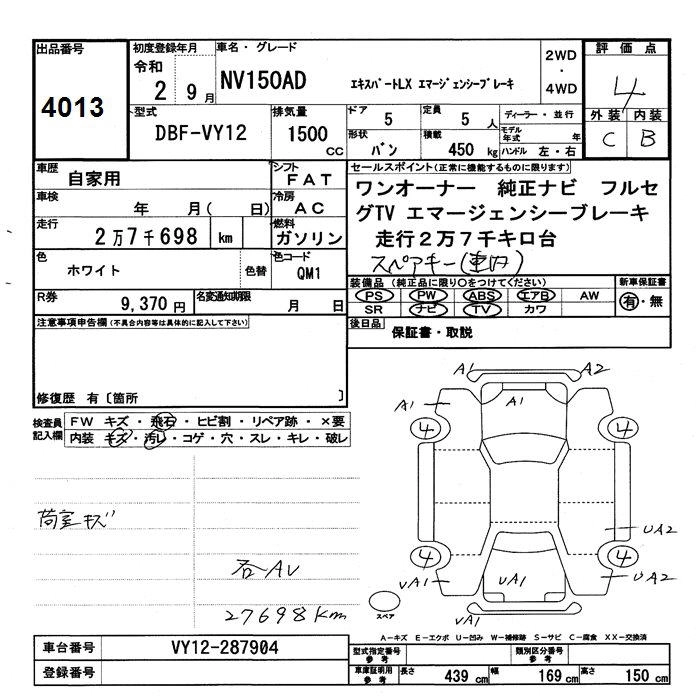 出品番号
4013
初度登録年月
令和
2 9月
車名・グレード
NV150AD エキスパートLX エマージェンシーブレーキ
2WD
・
4WD
評価点
4
外装 内装
C B
型式
DBF-VY12
排気量
1500
CC
ドア
5
定員
5 人
形状
バン
積載
450 kg
ディーラー・並行
モデル年式 年
ハンドル 左・右
車歴
自家用
シフト
FAT
車検
年 月( 日)
冷房
AC
走行
2万7千698 km
燃料
ガソリン
色
ホワイト
色替
色コード
QM1
R券
9,370円
名変通知期限
月 日
セールスポイント(正常に機能するものに限ります)
ワンオーナー 純正ナビ フルセ
グTV エマージェンシーブレーキ
走行2万7千キロ台
スペアキー(車内)
装備品 (純正品に限り○をつけてください)
PS PW ABS エアB AW
SR ナビ TV カワ
新車保証書
有・無
後日品
保証書・取説
注意事項申告欄(不具合内容等は具体的に記入して下さい)
修復歴 有〔箇所 〕
検査員
記入欄
FW キズ・飛石・ヒビ割・リペア跡・×要
内装 キズ・汚レ・コゲ・穴・スレ・キレ・破レ
荷室キズ
各AU
27698km
A1 A2
A1 A1
4 4
UA2
4 4
UA1 UA1 UA2
UA1
スペア
A-キズ E-エクボ U-凹み W-補修跡 S-サビ C-腐食 XX-交換済
車台番号
VY12-287904
登録番号
型式指定番号
参考
類別区分番号
参考
車庫証明用
参考
長さ 439 cm 幅 169 cm 高さ 150 cm